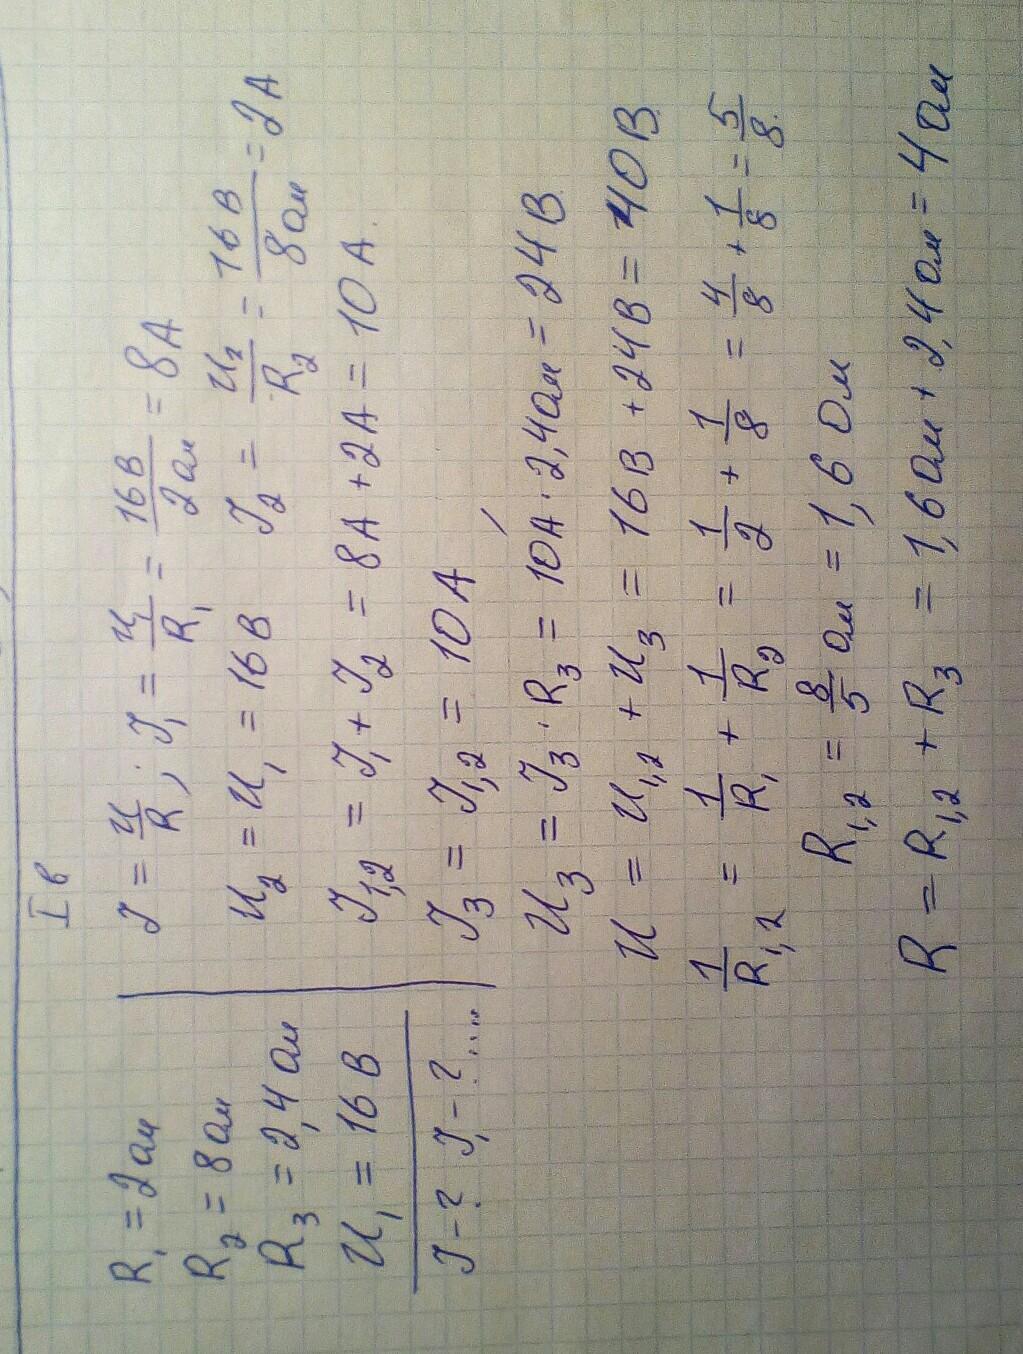 I в
R₁ = 2 Ом
R₂ = 8 Ом
R₃ = 2,4 Ом
U₁ = 16 В
I - ? I₁ - ? ...
I = U/R ; I₁ = U₁/R₁ = 16 В/2 Ом = 8 А
U₂ = U₁ = 16 В I₂ = U₂/R₂ = 16 В/8 Ом = 2 А
I₁,₂ = I₁ + I₂ = 8 А + 2 А = 10 А.
I₃ = I₁,₂ = 10 А
U₃ = I₃ · R₃ = 10 А · 2,4 Ом = 24 В.
U = U₁,₂ + U₃ = 16 В + 24 В = 40 В.
1/R₁,₂ = 1/R₁ + 1/R₂ = 1/2 + 1/8 = 4/8 + 1/8 = 5/8.
R₁,₂ = 8/5 Ом = 1,6 Ом
R = R₁,₂ + R₃ = 1,6 Ом + 2,4 Ом = 4 Ом